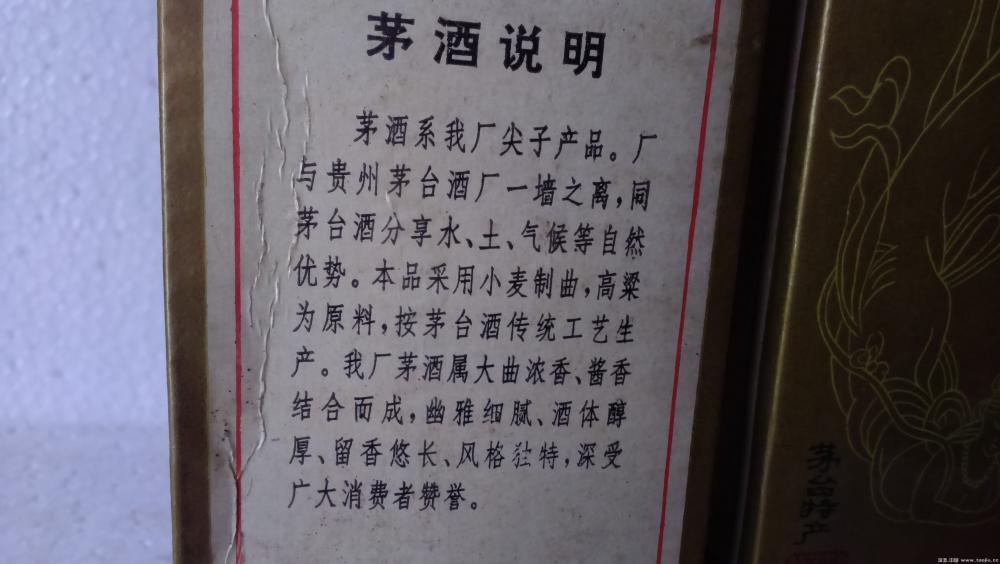 茅酒说明
茅酒系我厂尖子产品。厂
与贵州茅台酒厂一墙之离，同
茅台酒分享水、土、气候等自然
优势。本品采用小麦制曲，高粱
为原料，按茅台酒传统工艺生
产。我厂茅酒属大曲浓香、酱香
结合而成，幽雅细腻、酒体醇
厚、留香悠长、风格独特，深受
广大消费者赞誉。
茅台特产